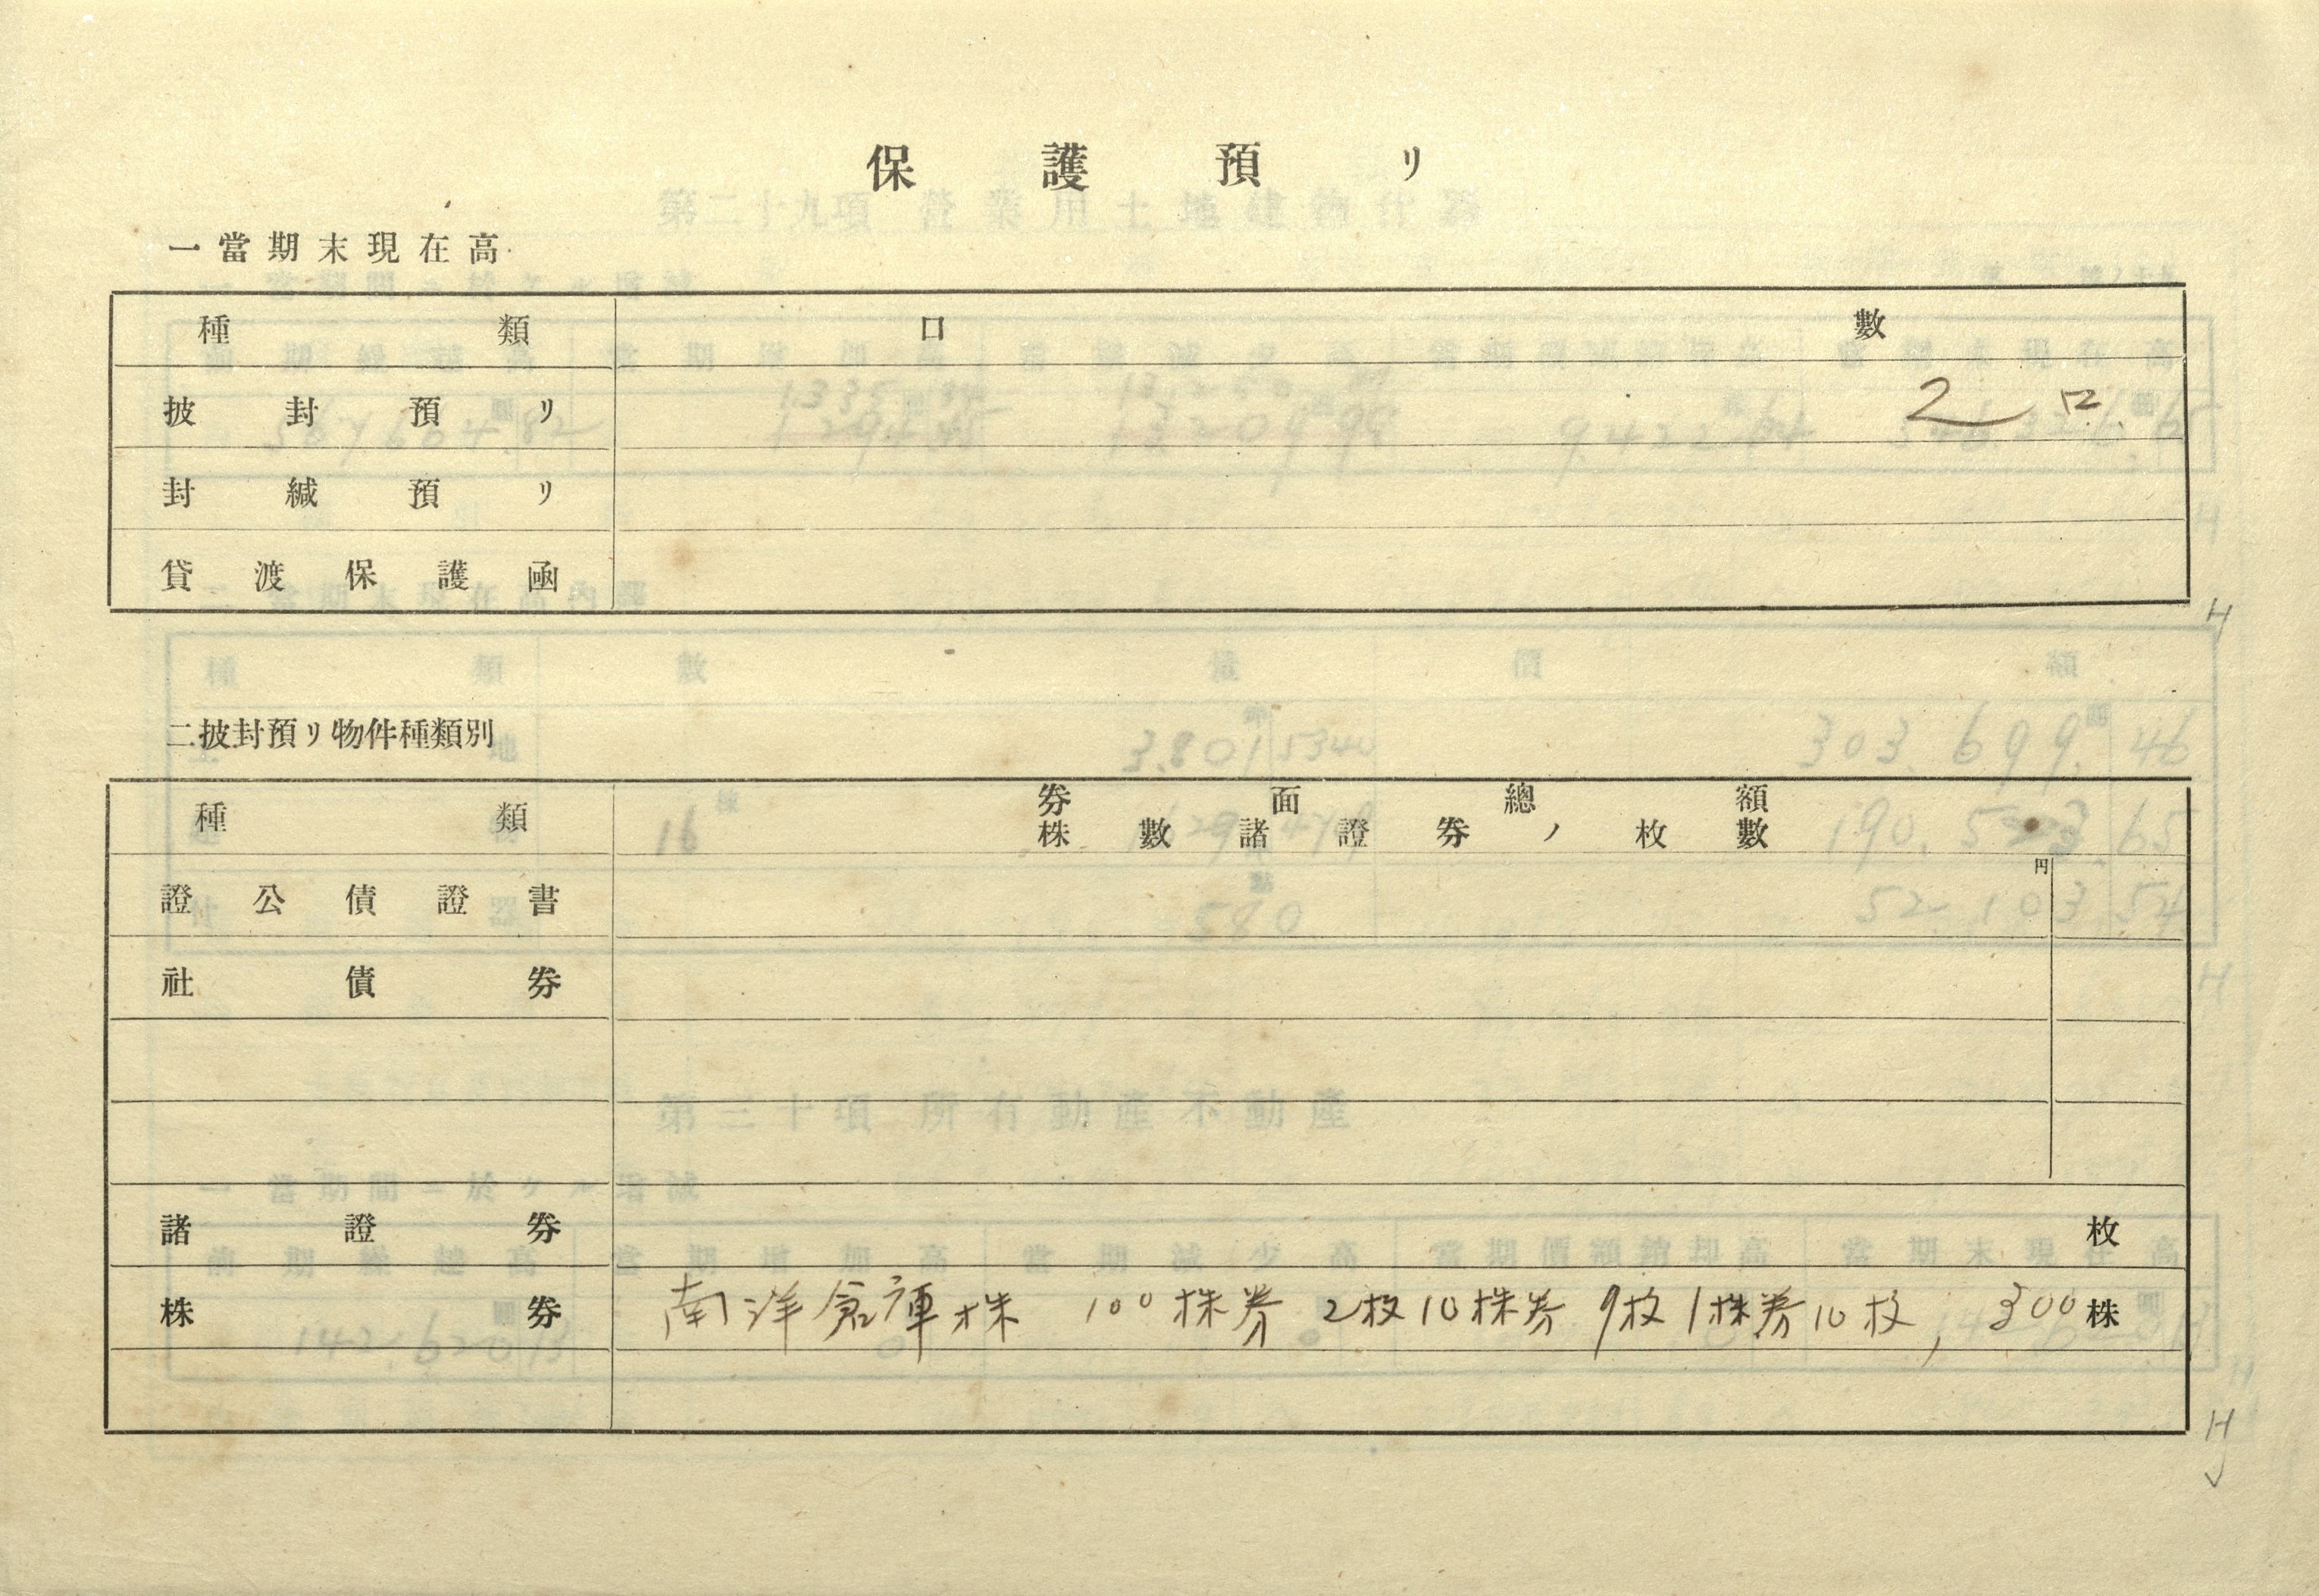 保護預リ
一當期末現在高
種類 口數
披封預リ 2口
封緘預リ
貸渡保護函
二披封預リ物件種類別
種類 券面總額
株數諸證券ノ枚數
證公債證書 円
社債券
諸證券 枚
株券 南洋倉庫株 100株券 2枚10株券 9枚1株券10枚, 300株
H
H